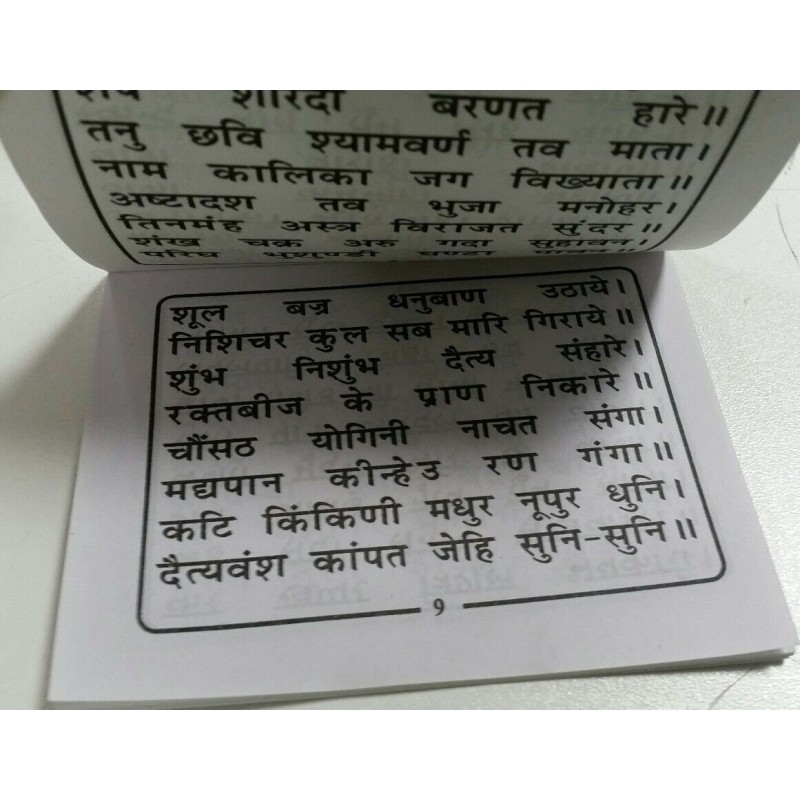 शारदा बरणत हारे॥
तनु छवि श्यामवर्ण तव माता।
नाम कालिका जग विख्याता॥
अष्टादश तव भुजा मनोहर।
तिनमंह अस्त्र विराजत सुंदर॥
शंख चक्र अरु गदा सुहावन।
परिघ भुशुण्डी घण्टा
शूल बज्र धनुबाण उठाये।
निशिचर कुल सब मारि गिराये॥
शुंभ निशुंभ दैत्य संहारे।
रक्तबीज के प्राण निकारे॥
चौंसठ योगिनी नाचत संगा।
मद्यपान कीन्हेउ रण गंगा॥
कटि किंकिणी मधुर नूपुर धुनि।
दैत्यवंश कांपत जेहि सुनि-सुनि॥
9